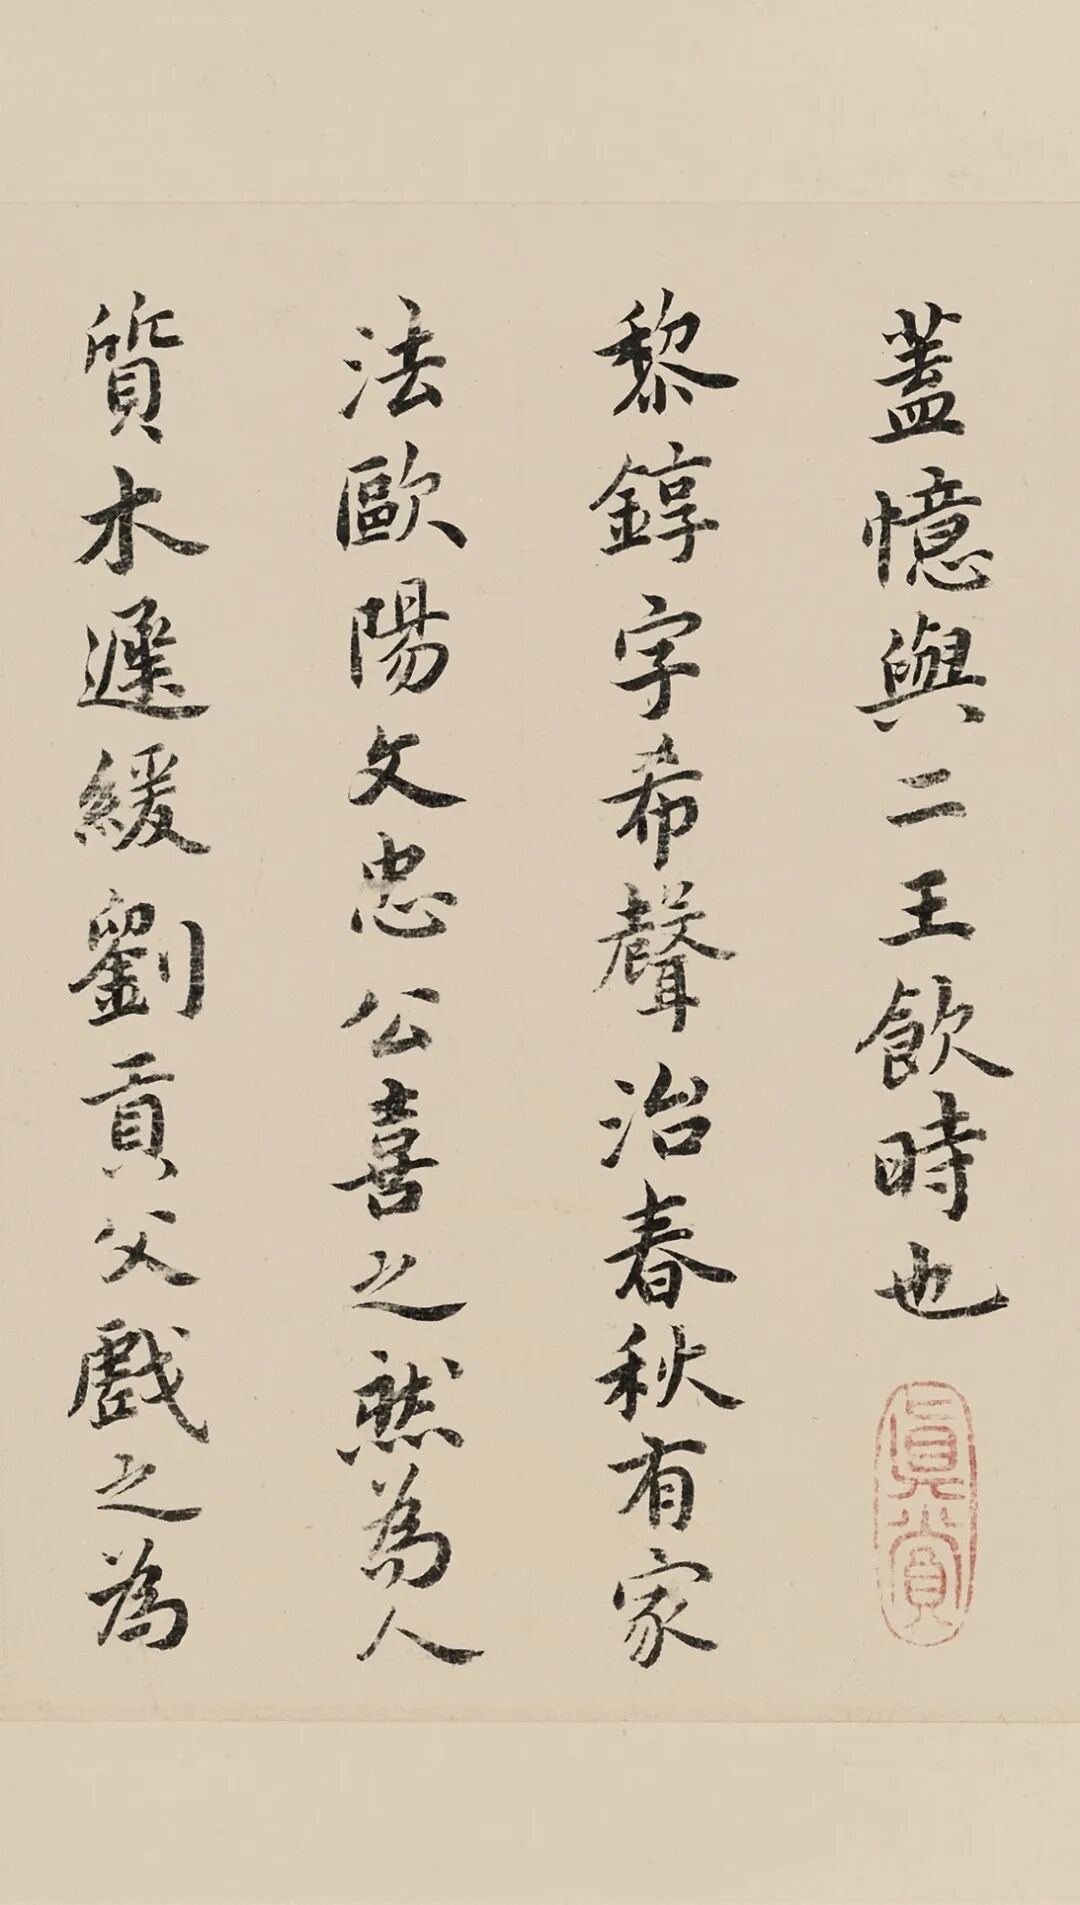 蓋憶與二王飲時也
眞賞
黎錞字希聲治春秋有家
法歐陽文忠公喜之然為人
質木遲緩劉貢父戲之為